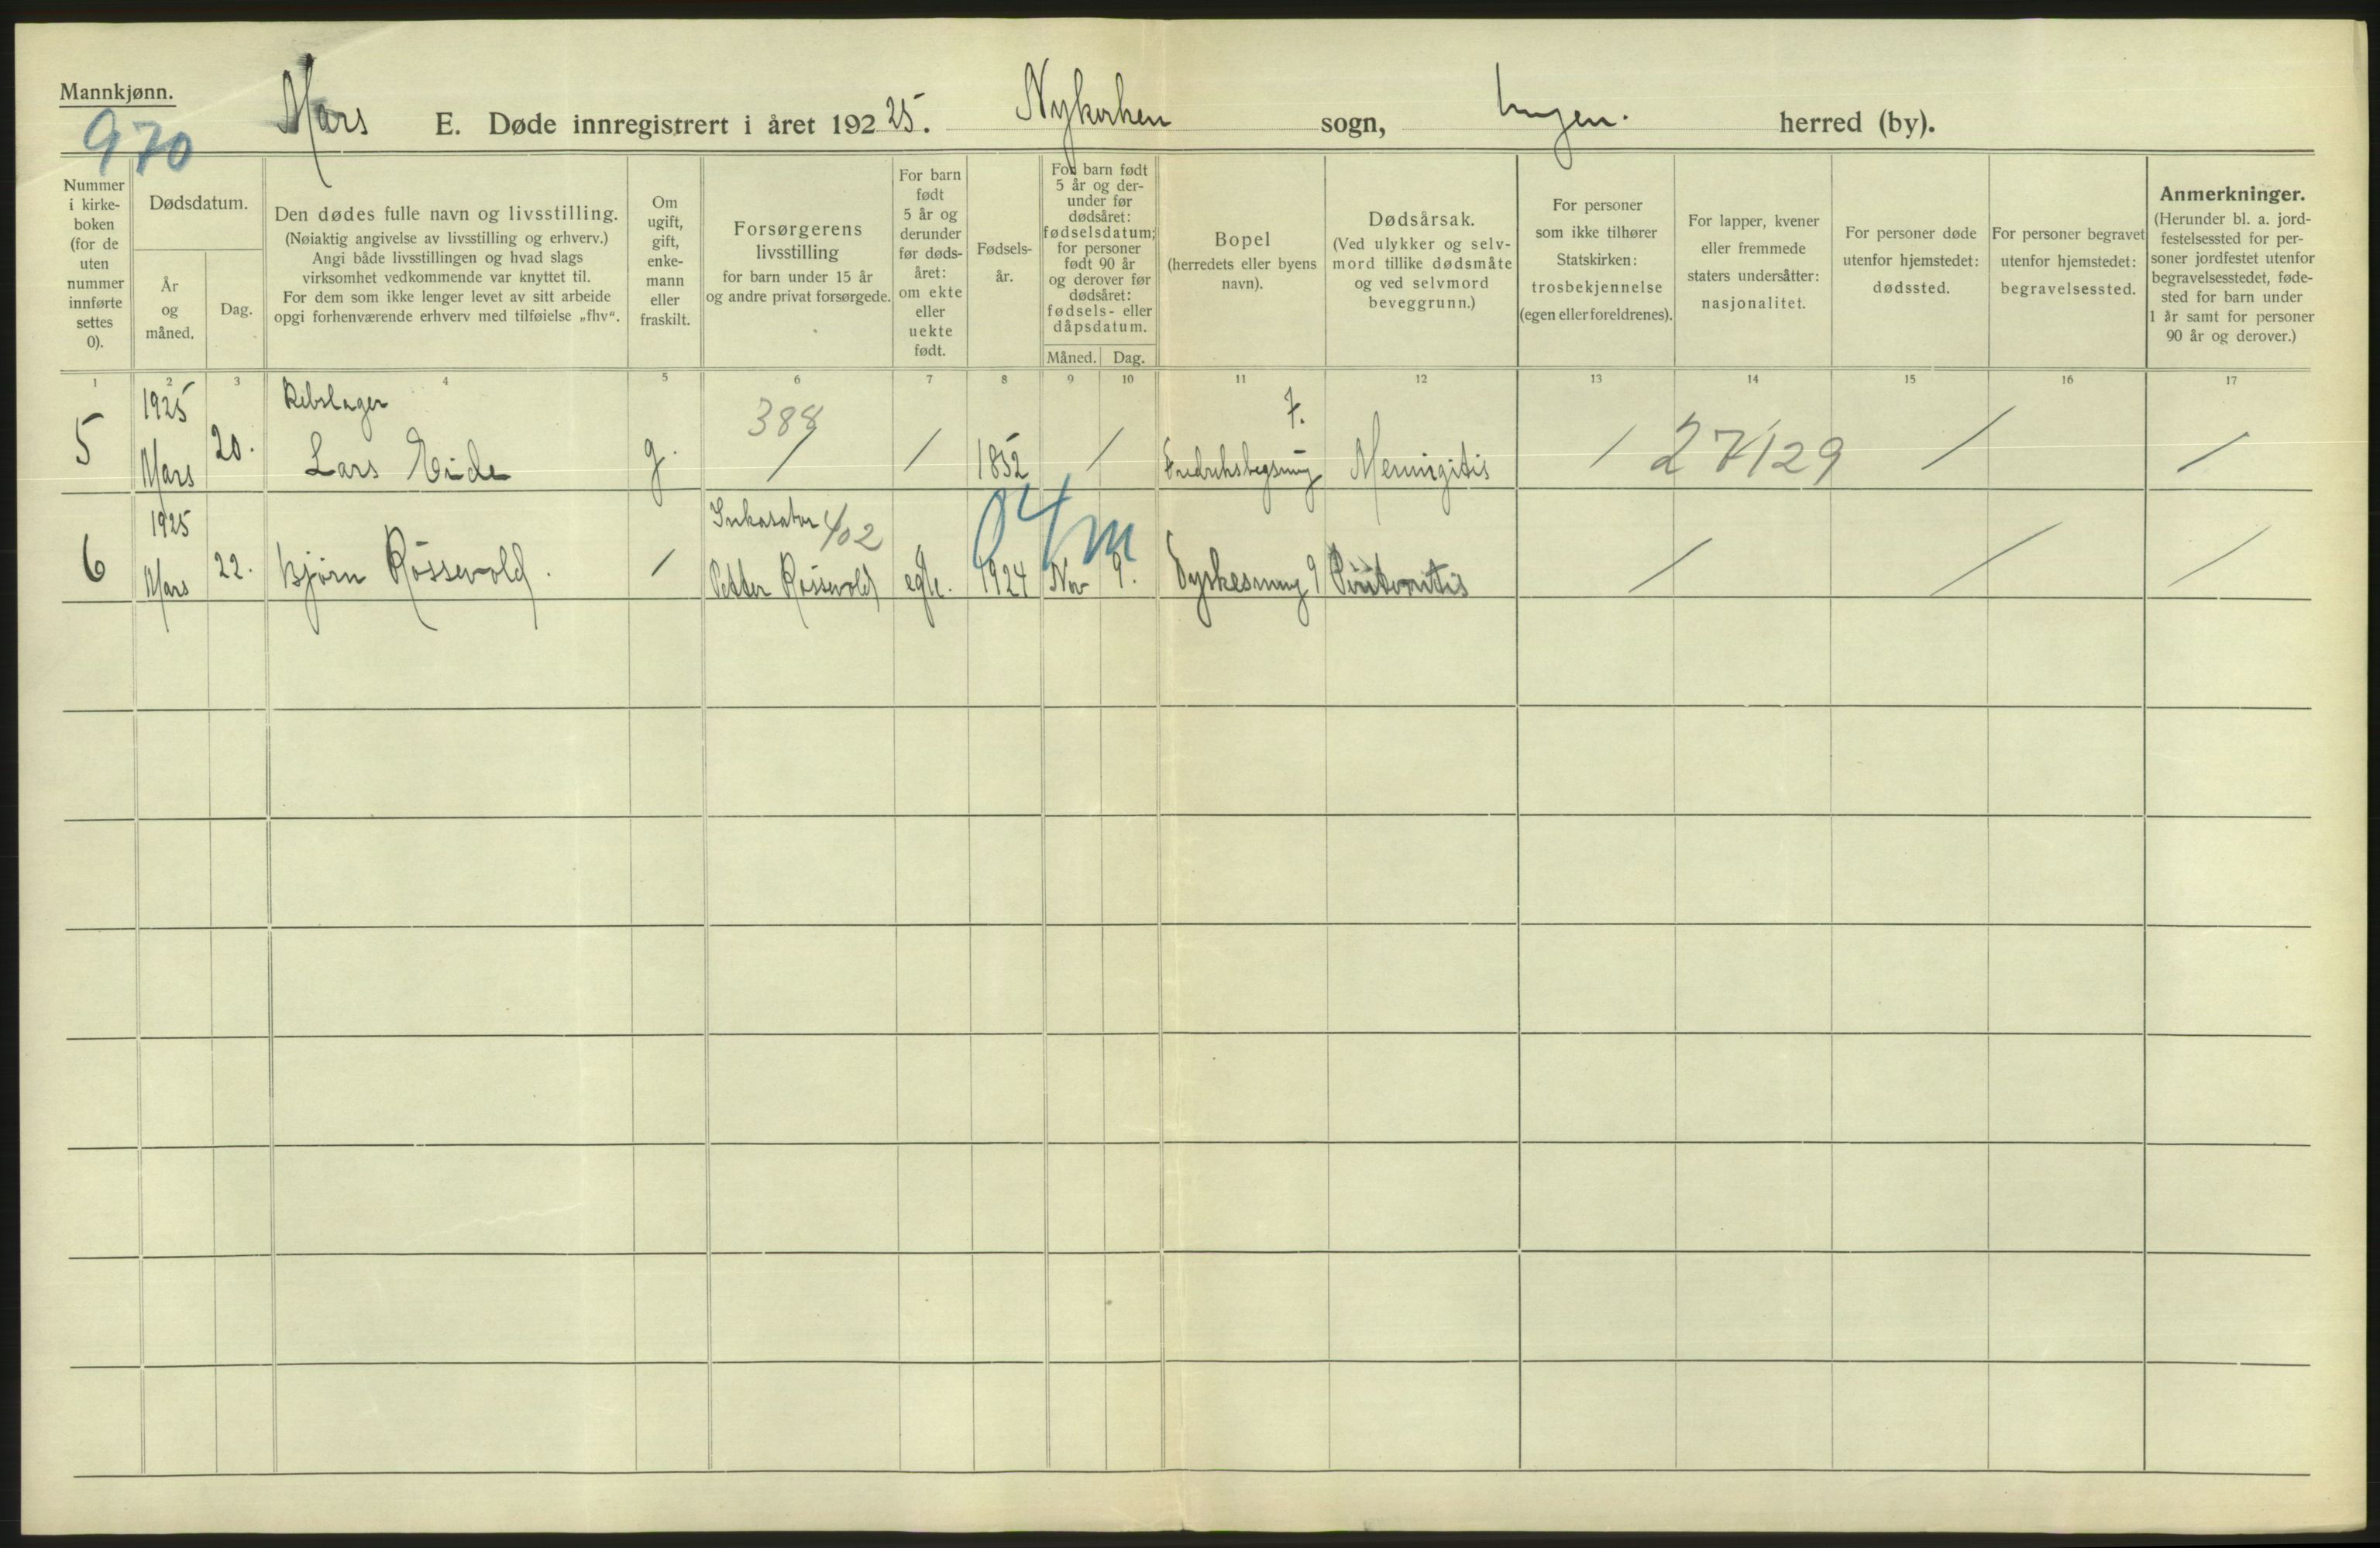 Mannkjønn.
970
Mars E. Døde innregistrert i året 192 25. Nykirken sogn, herred (by).
Nummer i kirke- boken (for de uten nummer innførte settes 0).
Dødsdatum.
År og måned.
Dag.
Den dødes fulle navn og livsstilling.
(Nøiaktig angivelse av livsstilling og erhverv.)
Angi både livsstillingen og hvad slags
virksomhet vedkommende var knyttet til.
For dem som ikke lenger levet av sitt arbeide
opgi forhenværende erhverv med tilføielse „fhv“.
Om ugift, gift, enke- mann eller fraskilt.
Forsørgerens
livsstilling
for barn under 15 år
og andre privat forsørgede.
For barn født 5 år og derunder før døds- året: om ekte eller uekte født.
Fødsels- år.
For barn født 5 år og der- under før dødsåret: fødselsdatum; for personer født 90 år og derover før dødsåret: fødsels- eller dåpsdatum.
Måned. Dag.
Bopel
(herredets eller byens
navn).
Dødsårsak.
(Ved ulykker og selv-
mord tillike dødsmåte
og ved selvmord
beveggrunn.)
For personer
som ikke tilhører
Statskirken:
trosbekjennelse
(egen eller foreldrenes).
For lapper, kvener
eller fremmede
staters undersåtter:
nasjonalitet.
For personer døde
utenfor hjemstedet:
dødssted.
For personer begravet
utenfor hjemstedet:
begravelsessted.
Anmerkninger.
(Herunder bl. a. jord-
festelsessted for per-
soner jordfestet utenfor
begravelsesstedet, føde-
sted for barn under
1 år samt for personer
90 år og derover.)
1 2 3 4 5 6 7 8 9 10 11 12 13 14 15 16 17
1925 Rebslager 388 7.
5 Mars 20. Lars Eide g. / / 1852 / Meningitis / 27129 / /
1925 Inkasator 402 04m
6 Mars 22. Bjørn Røssevold. / Petter Røssevold egte. 1924 Nov 9. 9 / / /